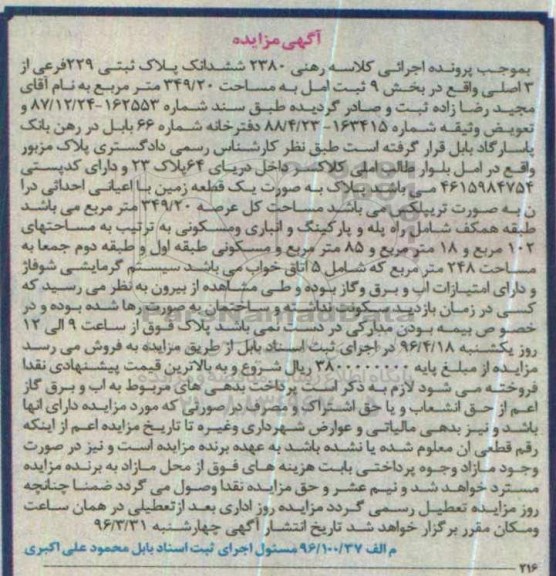 آگهی مزایده
بموجب پرونده اجرائی کلاسه رهنی ۲۳۸۰ ششدانگ پلاک ثبتی ۲۲۹فرعی از
۳ اصلی واقع در بخش ۹ ثبت امل به مساحت ۳۴۹/۲۰ متر مربع به نام آقای
مجید رضا زاده ثبت و صادر گردیده طبق سند شماره ۱۶۲۵۵۳-۸۷/۱۲/۲۴ و
تعویض وثیقه شماره ۱۶۳۴۱۵-۸۸/۴/۲۳ دفترخانه شماره ۶۶ بابل در رهن بانک
پاسارگاد بابل قرار گرفته است طبق نظر کارشناس رسمی دادگستری پلاک مزبور
واقع در امل بلوار طالب املی کلاکسر داخل دریای ۶۴پلاک ۲۳ و دارای کدپستی
۴۶۱۵۹۸۴۷۵۴ می باشد پلاک به صورت یک قطعه زمین با اعیانی احداثی درا
ن به صورت تریپلکس می باشد مساحت کل عرصه ۳۴۹/۲۰ متر مربع می باشد
طبقه همکف شامل راه پله و پارکینگ و انباری ومسکونی به ترتیب به مساحتهای
۱۰۲ مربع و ۱۸ متر مربع و ۸۵ متر مربع و مسکونی طبقه اول و طبقه دوم جمعا به
مساحت ۲۴۸ متر مربع که شامل ۵ اتاق خواب می باشد سیستم گرمایشی شوفاژ
و دارای امتیازات اب و برق وگاز بوده و طی مشاهده از بیرون به نظر می رسید که
کسی در زمان بازدید سکونت نداشته و ساختمان به صورت رها شده بوده و در
خصوص بیمه بودن مدارکی در دست نمی باشد پلاک فوق از ساعت ۹ الی ۱۲
روز یکشنبه ۹۶/۴/۱۸ در اجرای ثبت اسناد بابل از طریق مزایده به فروش می رسد
مزایده از مبلغ پایه ریال شروع و به بالاترین قیمت پیشنهادی نقدا
فروخته می شود لازم به ذکر است پرداخت بدهی های مربوط به اب و برق گاز
اعم از حق انشعاب و یا حق اشتراک و مصرف در صورتی که مورد مزایده دارای انها
باشد و نیز بدهی مالیاتی و عوارض شهرداری وغیره تا تاریخ مزایده اعم از اینکه
رقم قطعی ان معلوم شده یا نشده باشد به عهده برنده مزایده است و نیز در صورت
وجود مازاد وجوه پرداختی بابت هزینه های فوق از محل مازاد به برنده مزایده
مسترد خواهد شد و نیم عشر و حق مزایده نقدا وصول می گردد ضمنا چنانچه
روز مزایده تعطیل رسمی گردد مزایده روز اداری بعد ازتعطیلی در همان ساعت
ومکان مقرر برگزار خواهد شد تاریخ انتشار آگهی چهارشنبه ۹۶/۳/۳۱
م الف ۹۶/۱۰۰/۳۷ مسئول اجرای ثبت اسناد بابل محمود علی اکبری
۲۱۶